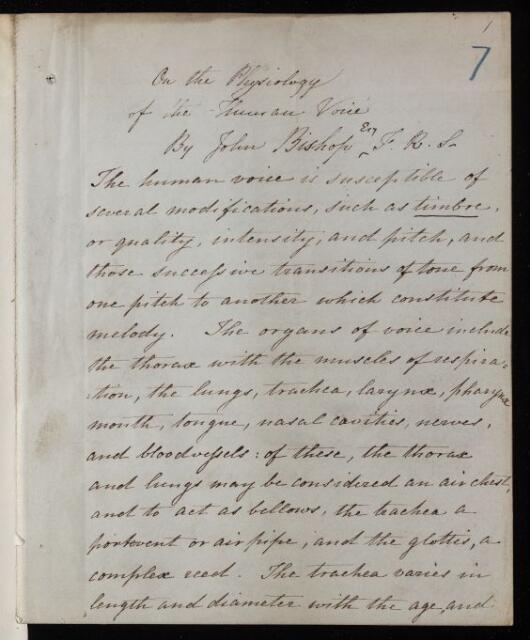 1
7
On the Physiology
of the Human Voice
By John Bishop Esq F. R. S.
The human voice is susceptible of
several modifications, such as timbre,
or quality, intensity, and pitch, and
those successive transitions of tone from
one pitch to another which constitute
melody. The organs of voice include
the thorax with the muscles of respira-
-tion, the lungs, trachea, larynx, pharynx
mouth, tongue, nasal cavities, nerves,
and bloodvessels: of these, the thorax
and lungs may be considered an air chest,
and to act as bellows, the trachea a
portvent or air pipe, and the glottis, a
complex reed. The trachea varies in
length and diameter with the age, and